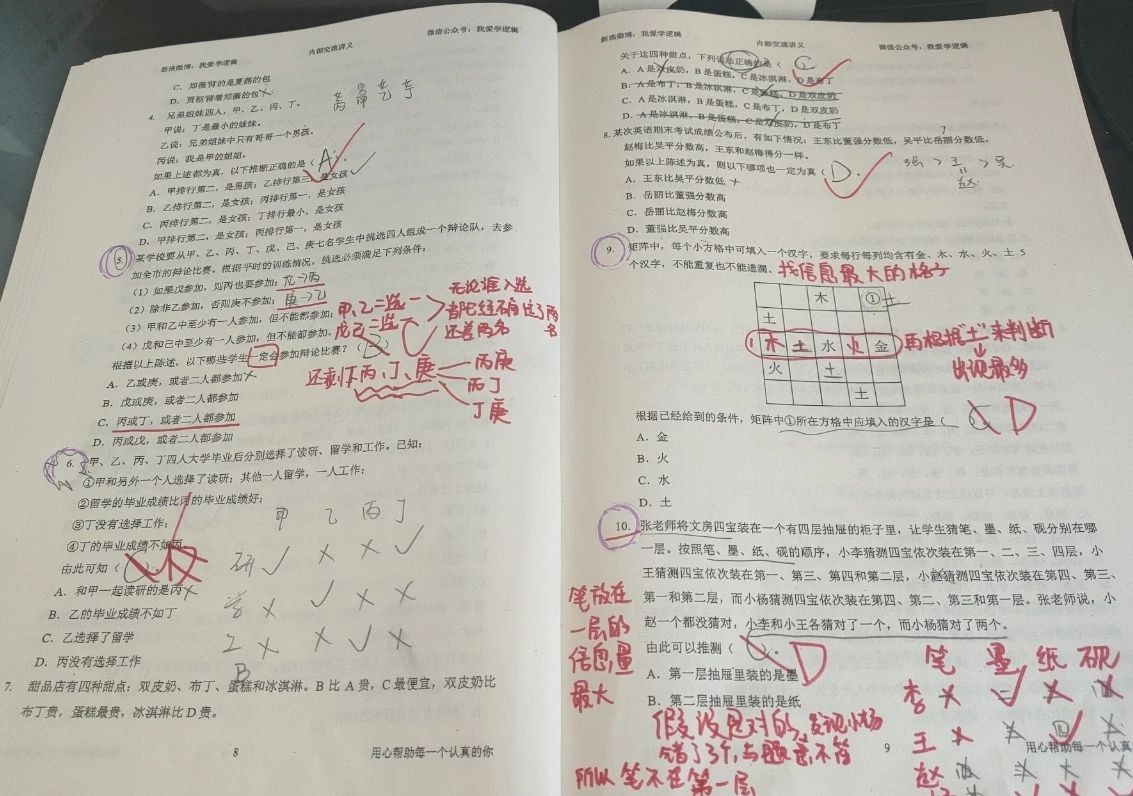 新浪微博：我爱学逻辑
内部交流讲义
微信公众号：我爱学逻辑
C. 郑薇背的是夏燕的包
D. 贾枢背着郑薇的包
4. 兄弟姐妹四人，甲、乙、丙、丁。
甲说：丁是最小的妹妹。
乙说：兄弟姐妹中只有哥哥一个男孩。
丙说：我是甲的姐姐。
如果上述都为真，以下推断正确的是（A）.
A. 甲排行第二，是男孩；乙排行第三，是女孩
B. 乙排行第二，是女孩；丙排行第一，是女孩
C. 丙排行第二，是女孩；丁排行最小，是女孩
D. 甲排行第二，是女孩；丙排行第一，是女孩
5. 某学校要从甲、乙、丙、丁、戊、己、庚七名学生中挑选四人组成一个辩论队，去参
加全市的辩论比赛。根据平时的训练情况，挑选必须满足下列条件：
（1）如果戊参加，则丙也要参加；戊→丙
（2）除非乙参加，否则庚不参加；庚→乙
（3）甲和乙中至少有一人参加，但不能都参加；甲、乙二选一
（4）戊和己中至少有一人参加，但不能都参加。戊己二选一
无论谁入选
还差两名
根据以上陈述，以下哪些学生一定会参加辩论比赛？（
A. 乙或庚，或者二人都参加
还剩下丙、丁、庚
丙庚
丙丁
丁庚
B. 戊或庚，或者二人都参加
C. 丙或丁，或者二人都参加
D. 丙或戊，或者二人都参加
6. 甲、乙、丙、丁四人大学毕业后分别选择了读研、留学和工作。已知：
①甲和另外一个人选择了读研；其他一人留学，一人工作；
②留学的毕业成绩比丙的毕业成绩好；
③丁没有选择工作；
④丁的毕业成绩不如丙
由此可知（
A. 和甲一起读研的是丙
B. 乙的毕业成绩不如丁
C. 乙选择了留学
D. 丙没有选择工作
甲 乙 丙 丁
研 ✓ × × ✓
学 × ✓ × ×
工 × × ✓ ×
B
7. 甜品店有四种甜点：双皮奶、布丁、蛋糕和冰淇淋。B 比 A 贵，C 最便宜，双皮奶比
布丁贵，蛋糕最贵，冰淇淋比 D 贵。
8
用心帮助每一个认真的你
新浪微博：我爱学逻辑
内部交流讲义
微信公众号：我爱学逻辑
关于这四种甜点，下列说法正确的是（
A. A 是双皮奶，B 是蛋糕，C 是冰淇淋，D 是布丁
B. A 是布丁，B 是冰淇淋，C 是蛋糕，D 是双皮奶
C. A 是冰淇淋，B 是蛋糕，C 是布丁，D 是双皮奶
D. A 是冰淇淋，B 是蛋糕，C 是双皮奶，D 是布丁
8. 某次英语期末考试成绩公布后，有如下情况：王东比董强分数低，吴平比岳丽分数低，
赵梅比吴平分数高，王东和赵梅得分一样。
如果以上陈述为真，则以下哪项也一定为真（D.
A. 王东比吴平分数低
B. 岳丽比董强分数高
C. 岳丽比赵梅分数高
D. 董强比吴平分数高
9. 矩阵中，每个小方格中可填入一个汉字，要求每行每列均含有金、木、水、火、土 5
个汉字，不能重复也不能遗漏。找信息最大的格子
木 ① 土
土
木 土 水 火 金
火 土
土
再根据"土"来判断
出现最多
根据已经给到的条件，矩阵中①所在方格中应填入的汉字是（ D
A. 金
B. 火
C. 水
D. 土
10. 张老师将文房四宝装在一个有四层抽屉的柜子里，让学生猜笔、墨、纸、砚分别在哪
一层。按照笔、墨、纸、砚的顺序，小李猜测四宝依次装在第一、二、三、四层，小
王猜测四宝依次装在第一、第三、第四和第二层，小赵猜测四宝依次装在第四、第三、
第一和第二层，而小杨猜测四宝依次装在第四、第二、第三和第一层。张老师说，小
赵一个都没猜对，小李和小王各猜对了一个，而小杨猜对了两个。
由此可以推测（ ）。D
A. 第一层抽屉里装的是墨
B. 第二层抽屉里装的是纸
笔放在
一层的
信息量
最大
假设是对的，发现小杨
错了3个，与题意不符
所以笔不在第一层
笔 墨 纸 砚
李
王
赵
9
用心帮助每一个认真